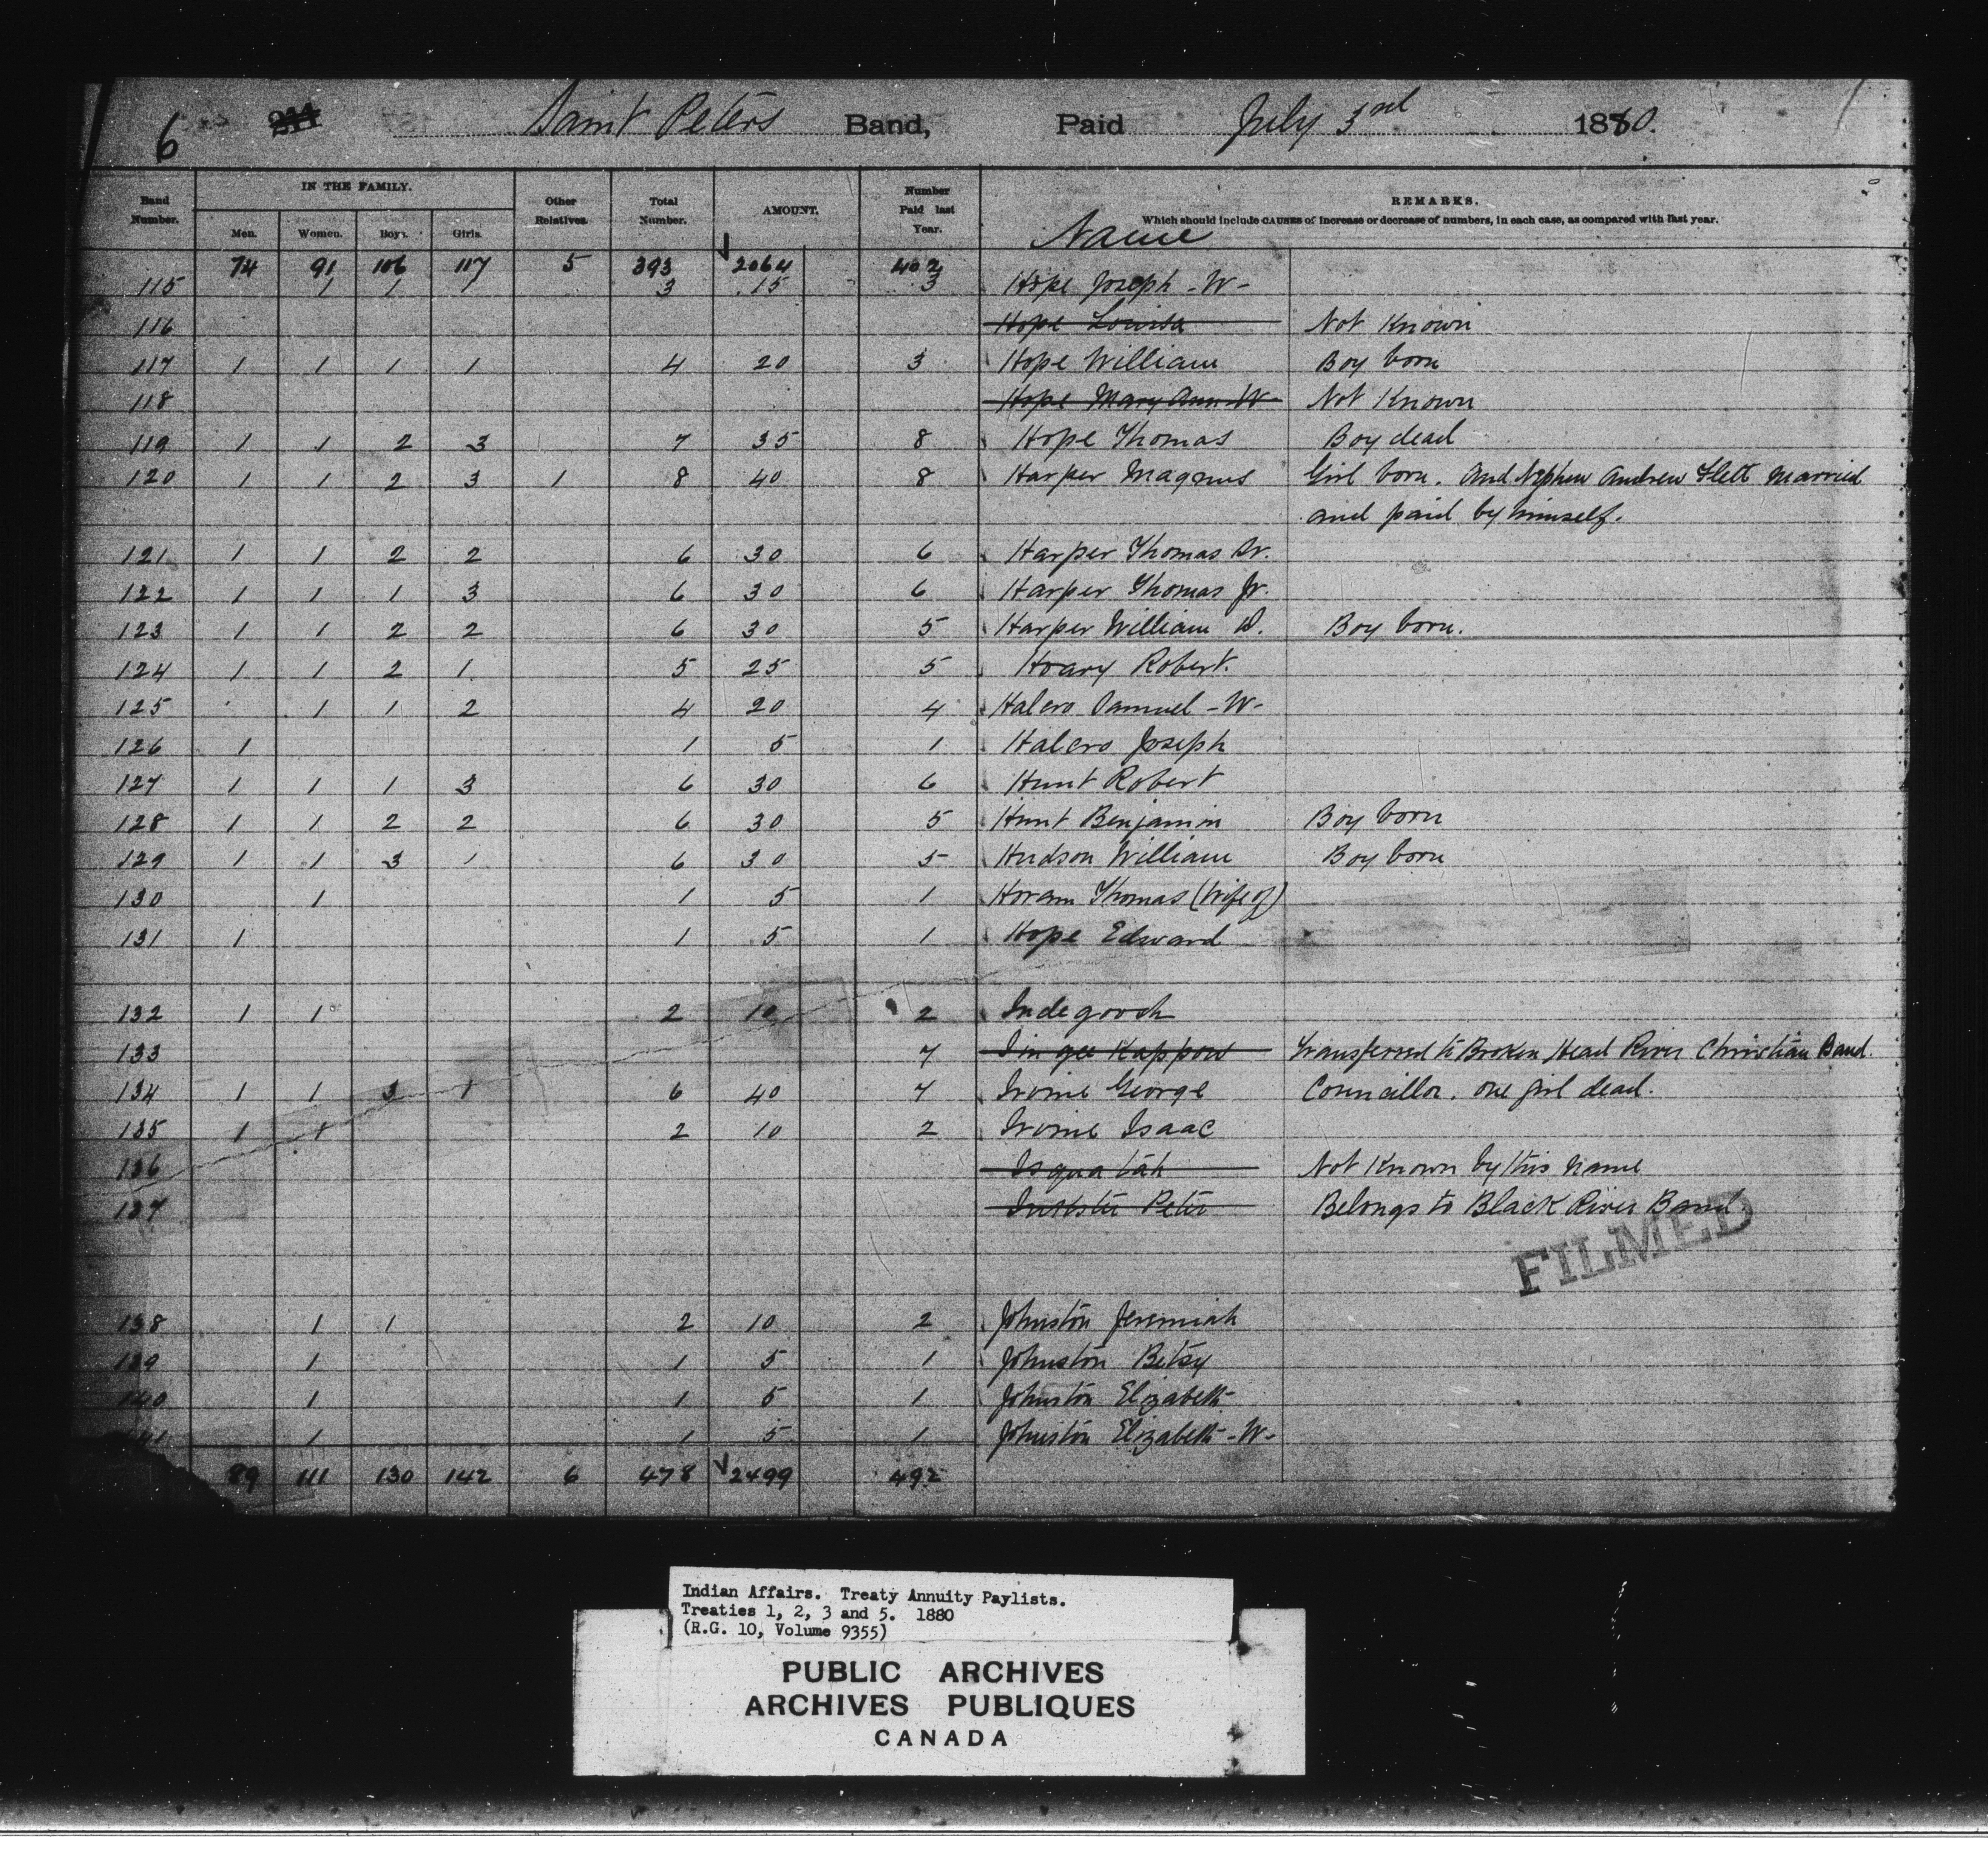 6 244 Saint Peters Band, Paid July 3rd 1880.
IN THE FAMILY.
Band Number. Men. Women. Boys. Girls. Other Relatives. Total Number. AMOUNT. Number Paid last Year. Name REMARKS.
Which should include CAUSES of increase or decrease of numbers, in each case, as compared with last year.
74 91 106 117 5 393 2064 402
115 1 1 1 3 15 3 Hope Joseph -W-
116 Hope Louisa Not Known
117 1 1 1 1 4 20 3 Hope William Boy born
118 Hope Mary Ann W Not Known
119 1 1 2 3 7 35 8 Hope Thomas Boy dead
120 1 1 2 3 1 8 40 8 Harper Magnus Girl born. And Nephew Andrew Flett Married
and paid by himself.
121 1 1 2 2 6 30 6 Harper Thomas Sr.
122 1 1 1 3 6 30 6 Harper Thomas Jr.
123 1 1 2 2 6 30 5 Harper William D. Boy born.
124 1 1 2 1 5 25 5 Hoary Robert.
125 1 1 2 4 20 4 Halcro Samuel -W-
126 1 1 5 1 Halcro Joseph
127 1 1 1 3 6 30 6 Hunt Robert
128 1 1 2 2 6 30 5 Hunt Benjamin Boy born
129 1 1 3 1 6 30 5 Hudson William Boy born
130 1 1 5 1 Thomas (Wife of)
131 1 1 5 1 Hope Edward
132 1 1 2 10 2 Indegoosh
133 7 Kappow Transferred to Broken Head River Christian Band.
134 1 1 3 1 6 40 7 Irvine George Councillor. one girl dead.
135 1 1 2 10 2 Irvine Isaac
136 Isquatah Not Known by this name
137 Inkster Peter Belongs to Black River Band
FILMED
138 1 1 2 10 2 Johnston Jeremiah
139 1 1 5 1 Johnston Betsy
140 1 1 5 1 Johnston Elizabeth
141 1 1 5 1 Johnston Elizabeth -W-
89 111 130 142 6 478 2499 492
Indian Affairs. Treaty Annuity Paylists.
Treaties 1, 2, 3 and 5. 1880
(R.G. 10, Volume 9355)
PUBLIC ARCHIVES
ARCHIVES PUBLIQUES
CANADA